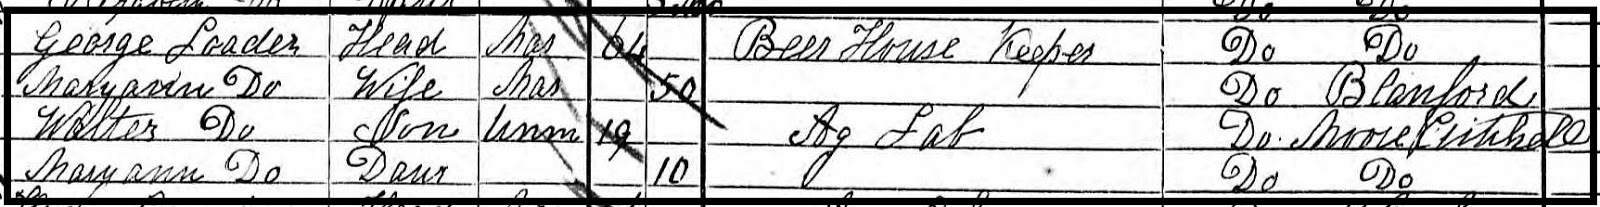 George Loader Head Mar 64 Beer House Keeper Do Do
Maryann Do Wife Mar 50 Do Blanford
Walter Do Son Unm 19 Ag Lab Do. Moore Critchell
Maryann Do Daur 10 Do Do